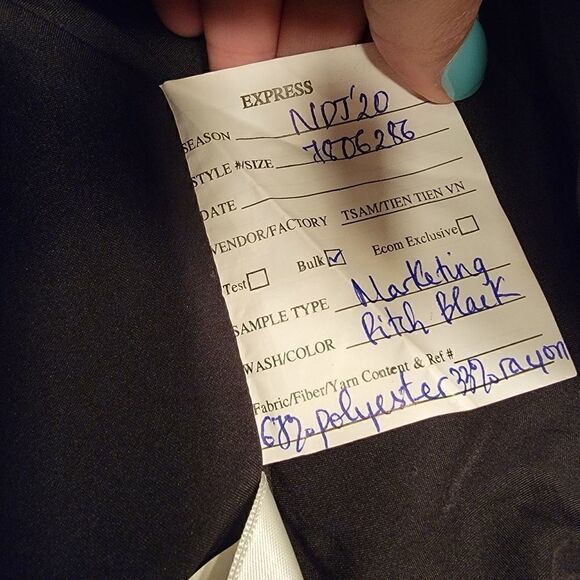 EXPRESS
SEASON NDJ'20
STYLE #/SIZE 7806286
DATE
VENDOR/FACTORY TSAM/TIEN TIEN VN
Test Bulk Ecom Exclusive
SAMPLE TYPE Marketing
WASH/COLOR Pitch Black
Fabric/Fiber/Yarn Content & Ref #
67% polyester 33% rayon